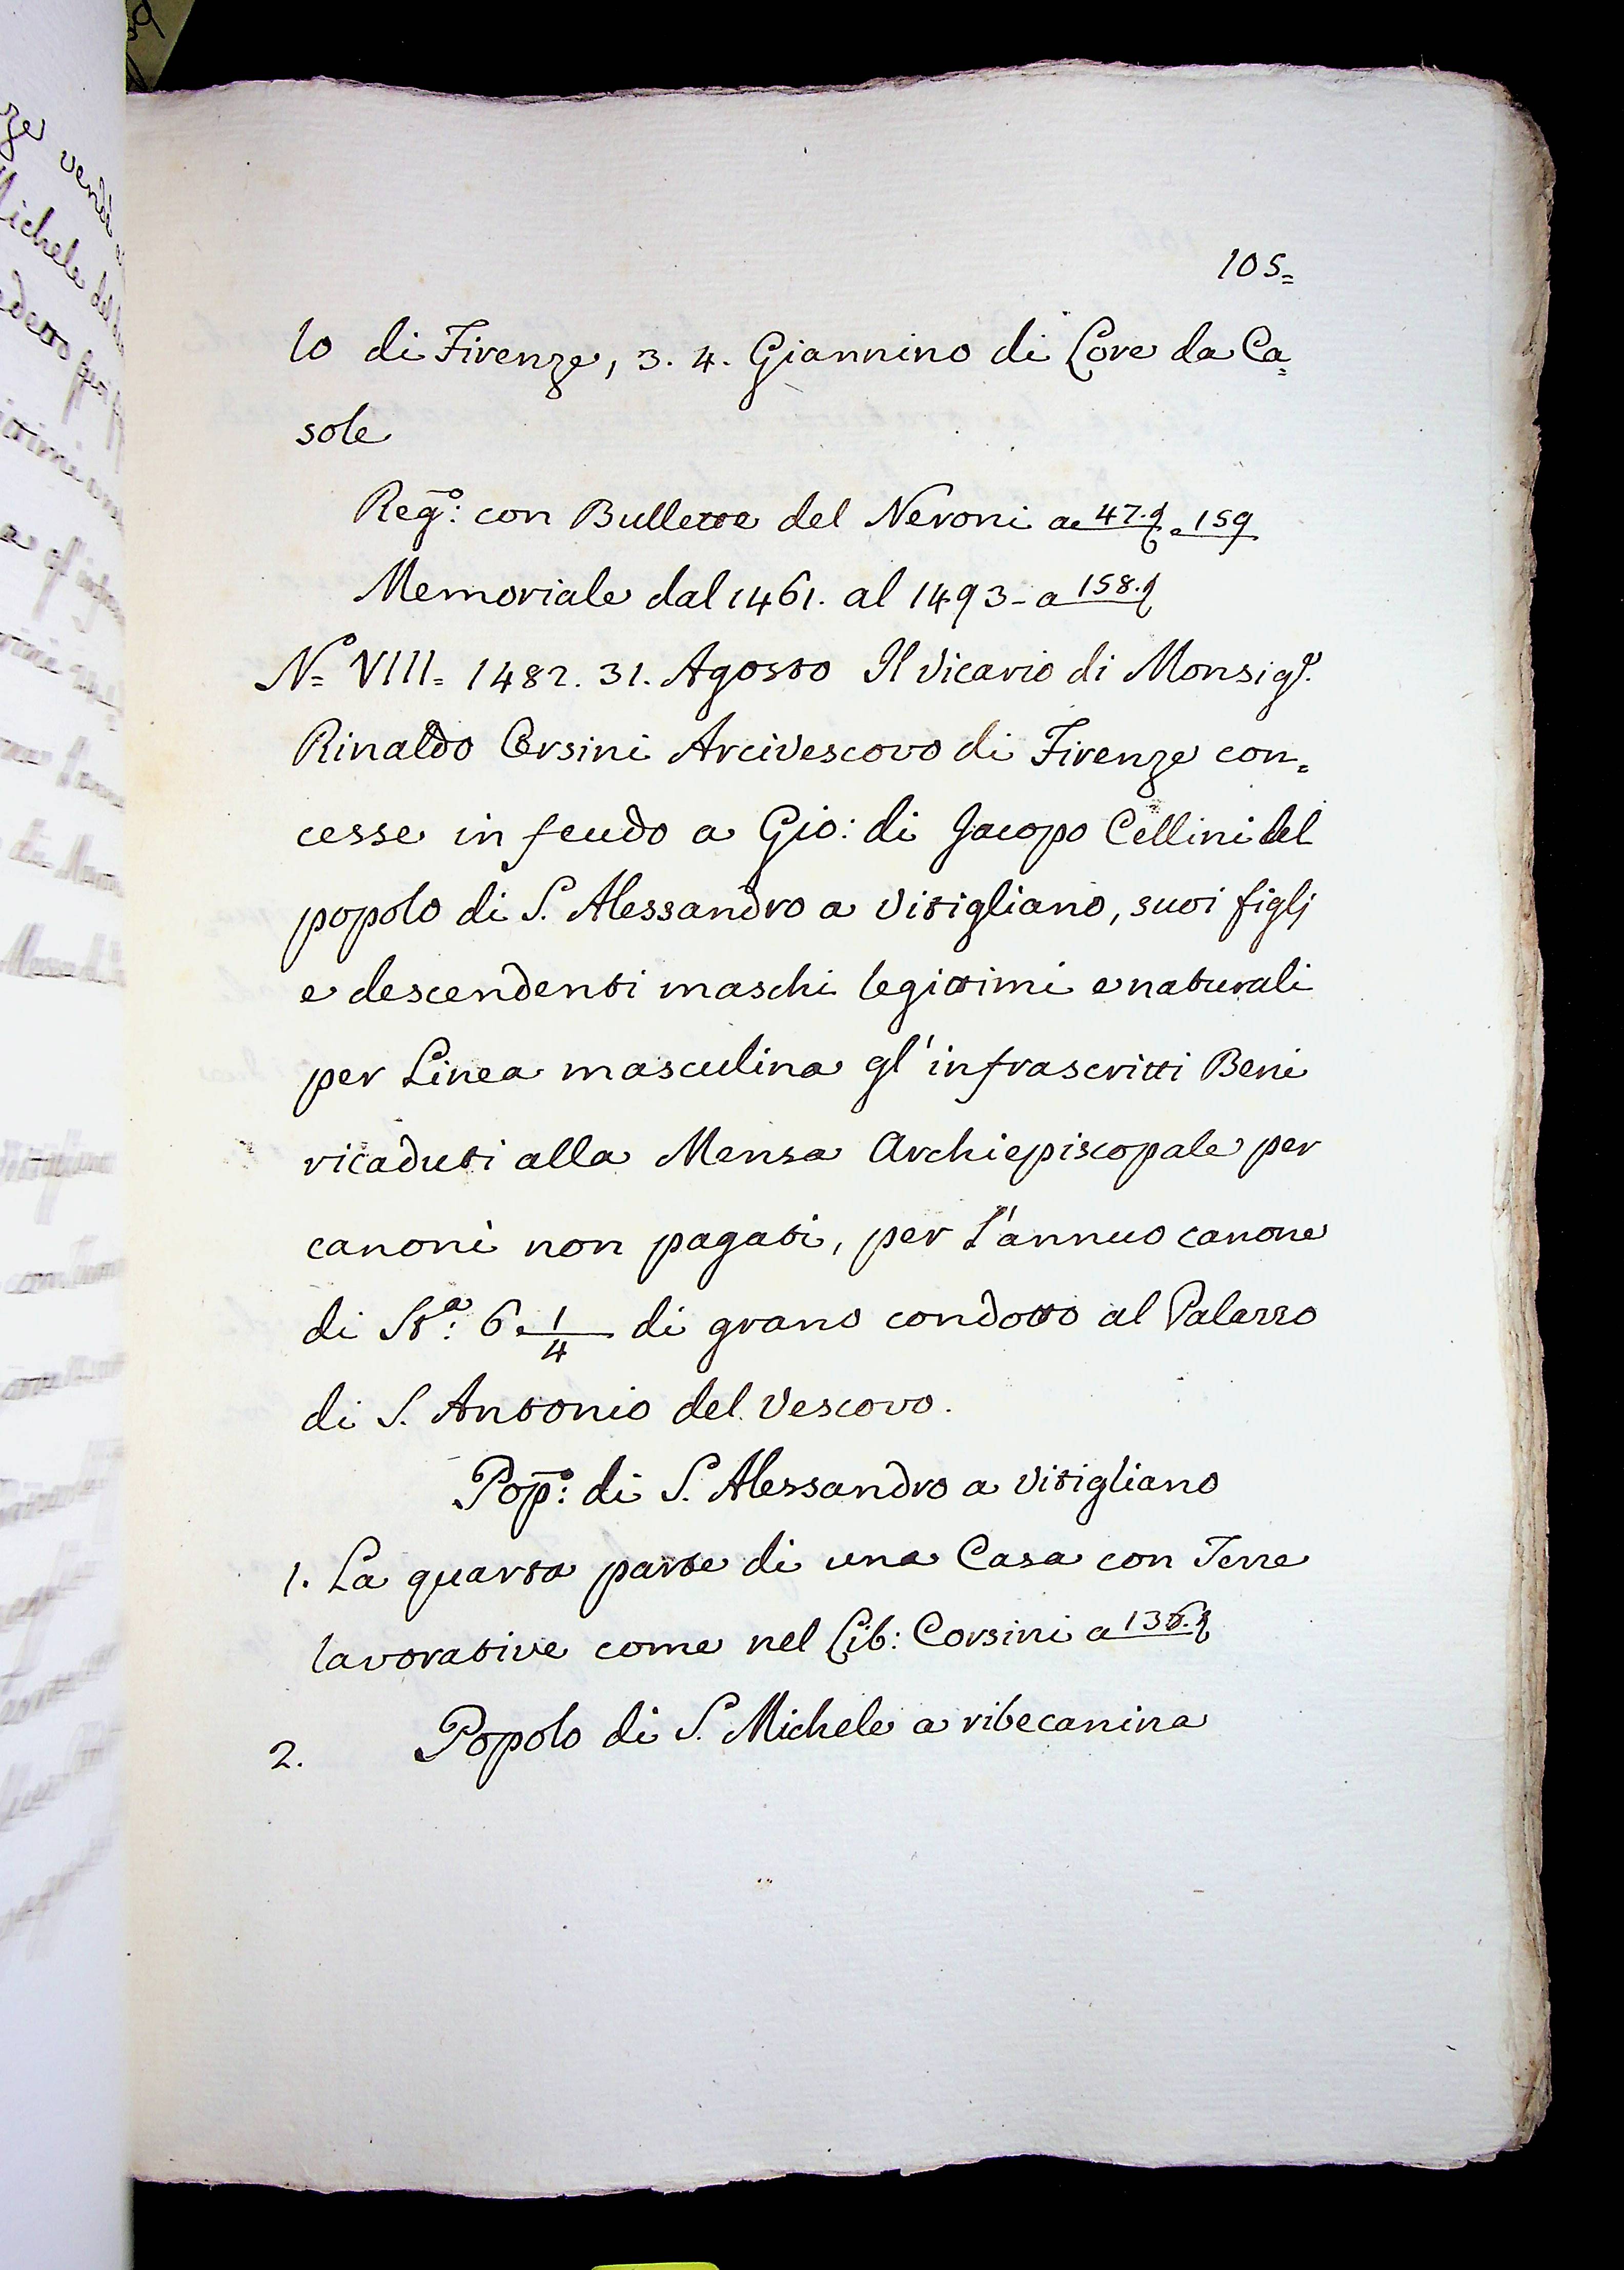 105=
lo di Firenze, 3. 4. Giannino di Core da Ca=
sole
Reg:o con Bullette del Neroni a 47. e 159
Memoriale dal 1461. al 1493 - a 158.
No= VIII= 1482. 31. Agosto Il Vicario di Monsig.r
Rinaldo Orsini Arcivescovo di Firenze con=
cesse in feudo a Gio: di Jacopo Cellini del
popolo di S. Alessandro a Vitigliano, suoi figlj
e descendenti maschi legittimi e naturali
per Linea masculina gl'infrascritti Beni
ricaduti alla Mensa Archiepiscopale per
canoni non pagati, per l'annuo canone
di St:a 6. 1/4 di grano condotto al Palazzo
di S. Antonio del Vescovo.
Pop:o di S. Alessandro a Vitigliano
1. La quarta parte di una Casa con Terre
lavorative come nel Lib: Corsini a
2. Popolo di S. Michele a ribecanina